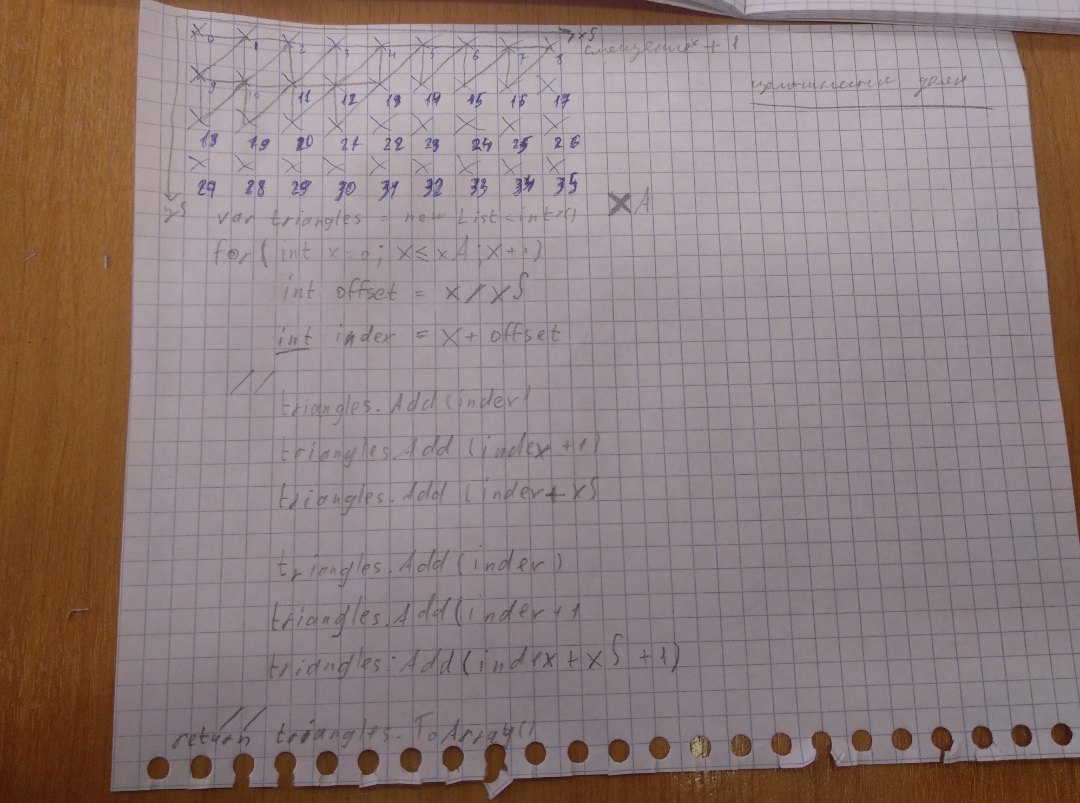 0 1 2 3 4 5 6 7 8 xS смещение + 1
9 10 11 12 13 14 15 16 17 целочисленное деление
18 19 20 21 22 23 24 25 26
27 28 29 30 31 32 33 34 35
yS
XA
var triangles = new List<int>()
for( int x=0; x≤xA; x++)
int offset = x/xS
int index = x+ offset
//
triangles.Add(index)
triangles.Add(index+1)
triangles.Add(index+xS
triangles.Add(index)
triangles.Add(index+1
triangles.Add(index+xS+1)
//
return triangles.ToArray()